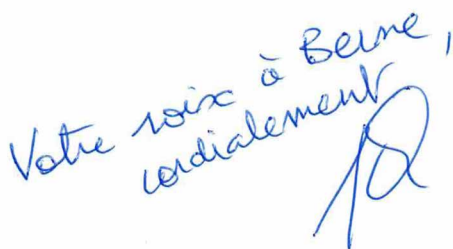 Votre voix à Berne,
cordialement